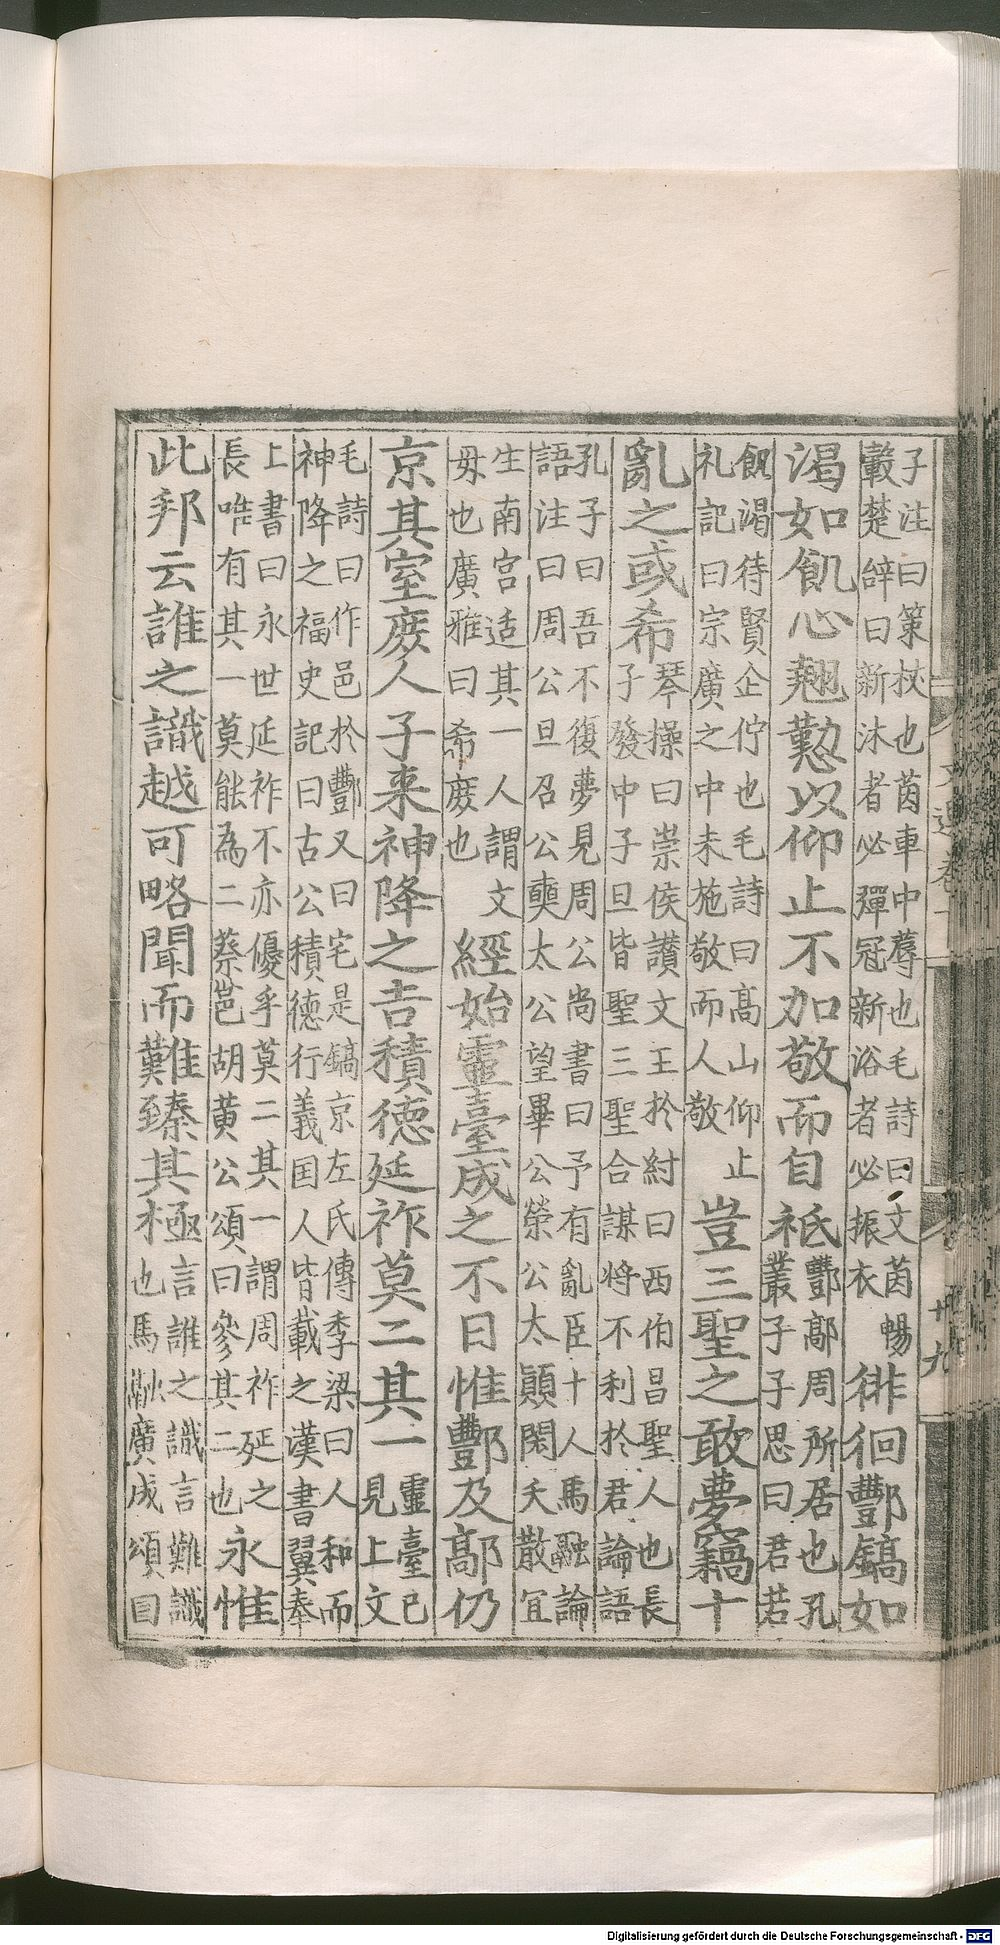 子注曰策挾也茵車中蓐也毛詩曰文茵暢
轂楚辭曰新沐者必彈冠新浴者必振衣
徘徊酆鎬如
渴如飢心翹懃以仰止不加敬而自祗
酆鄗周所居也孔
叢子子思曰君若
飢渴待賢企佇也毛詩曰髙山仰止
礼記曰宗廣之中未施敬而人敬
豈三聖之敢夢竊十
亂之或希
琴操曰崇侯讃文王於紂曰西伯昌聖人也長
子發中子旦皆聖三聖合謀将不利於君論語
孔子曰吾不復夢見周公尚書曰予有亂臣十人馬融論
語注曰周公旦召公奭太公望畢公榮公太顚閎夭散宜
生南宫适其一人謂文
毋也廣雅曰希庶也
經始靈臺成之不日惟酆及鄗仍
京其室庶人子来神降之吉積徳延祚莫二其一
靈臺已
見上文
毛詩曰作邑於酆又曰宅是鎬京左氏傳季梁曰人和而
神降之福史記曰古公積徳行義囯人皆載之漢書翼奉
上書曰永世延祚不亦優乎莫二其一謂周祚延之
長唯有其一莫能為二蔡邕胡黄公頌曰參其二也
永惟
此邦云誰之識越可略聞而難臻其極
言誰之識言難識
也馬融廣成頌曰
文選卷十
廿九
Digitalisierung gefördert durch die Deutsche Forschungsgemeinschaft - DFG